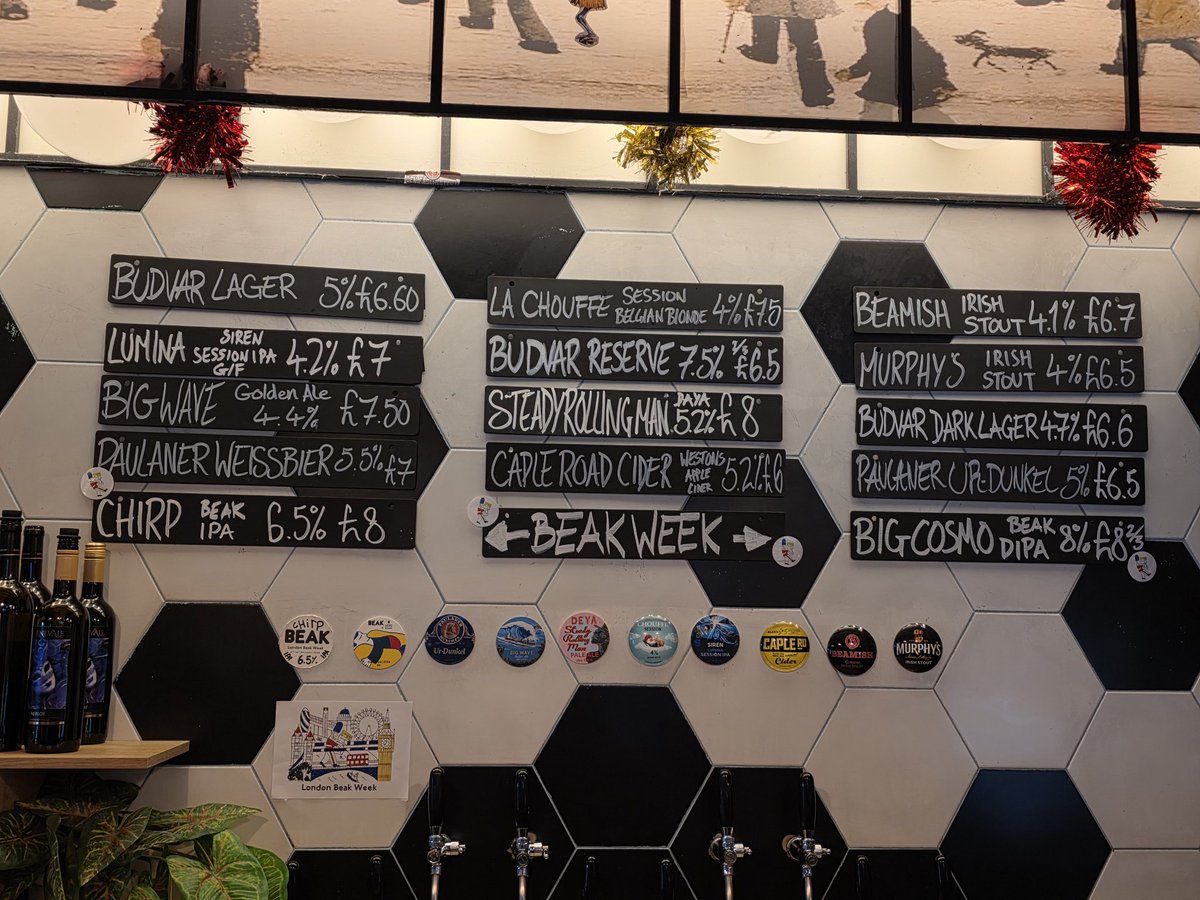 BUDVAR LAGER 5% £6.60
LUMINA SIREN SESSION IPA G/F 4.2% £7
BIG WAVE Golden Ale 4.4% £7.50
PAULANER WEISSBIER 5.5% £7
CHIRP BEAK IPA 6.5% £8
LA CHOUFFE SESSION BELGIAN BLONDE 4% £7.5
BUDVAR RESERVE 7.5% ½ £6.5
STEADY ROLLING MAN DAYA 5.2% £8
CAPLE ROAD CIDER WESTONS APPLE CIDER 5.2% £6
← BEAK WEEK →
BEAMISH IRISH STOUT 4.1% £6.7
MURPHY'S IRISH STOUT 4% £6.5
BUDVAR DARK LAGER 4.7% £6.6
PAULANER UR-DUNKEL 5% £6.5
BIG COSMO BEAK DIPA 8% £8 2/3
CHIRP
BEAK
London Beak Week
IPA 6.5%
BEAK
PAULANER
Ur-Dunkel
BIG WAVE
DEYA
Steady
Rolling
Man
PALE ALE
CHOUFFE
4%
SIREN
SESSION IPA
CAPLE RD
Cider
BEAMISH
MURPHY'S
IRISH STOUT
London Beak Week